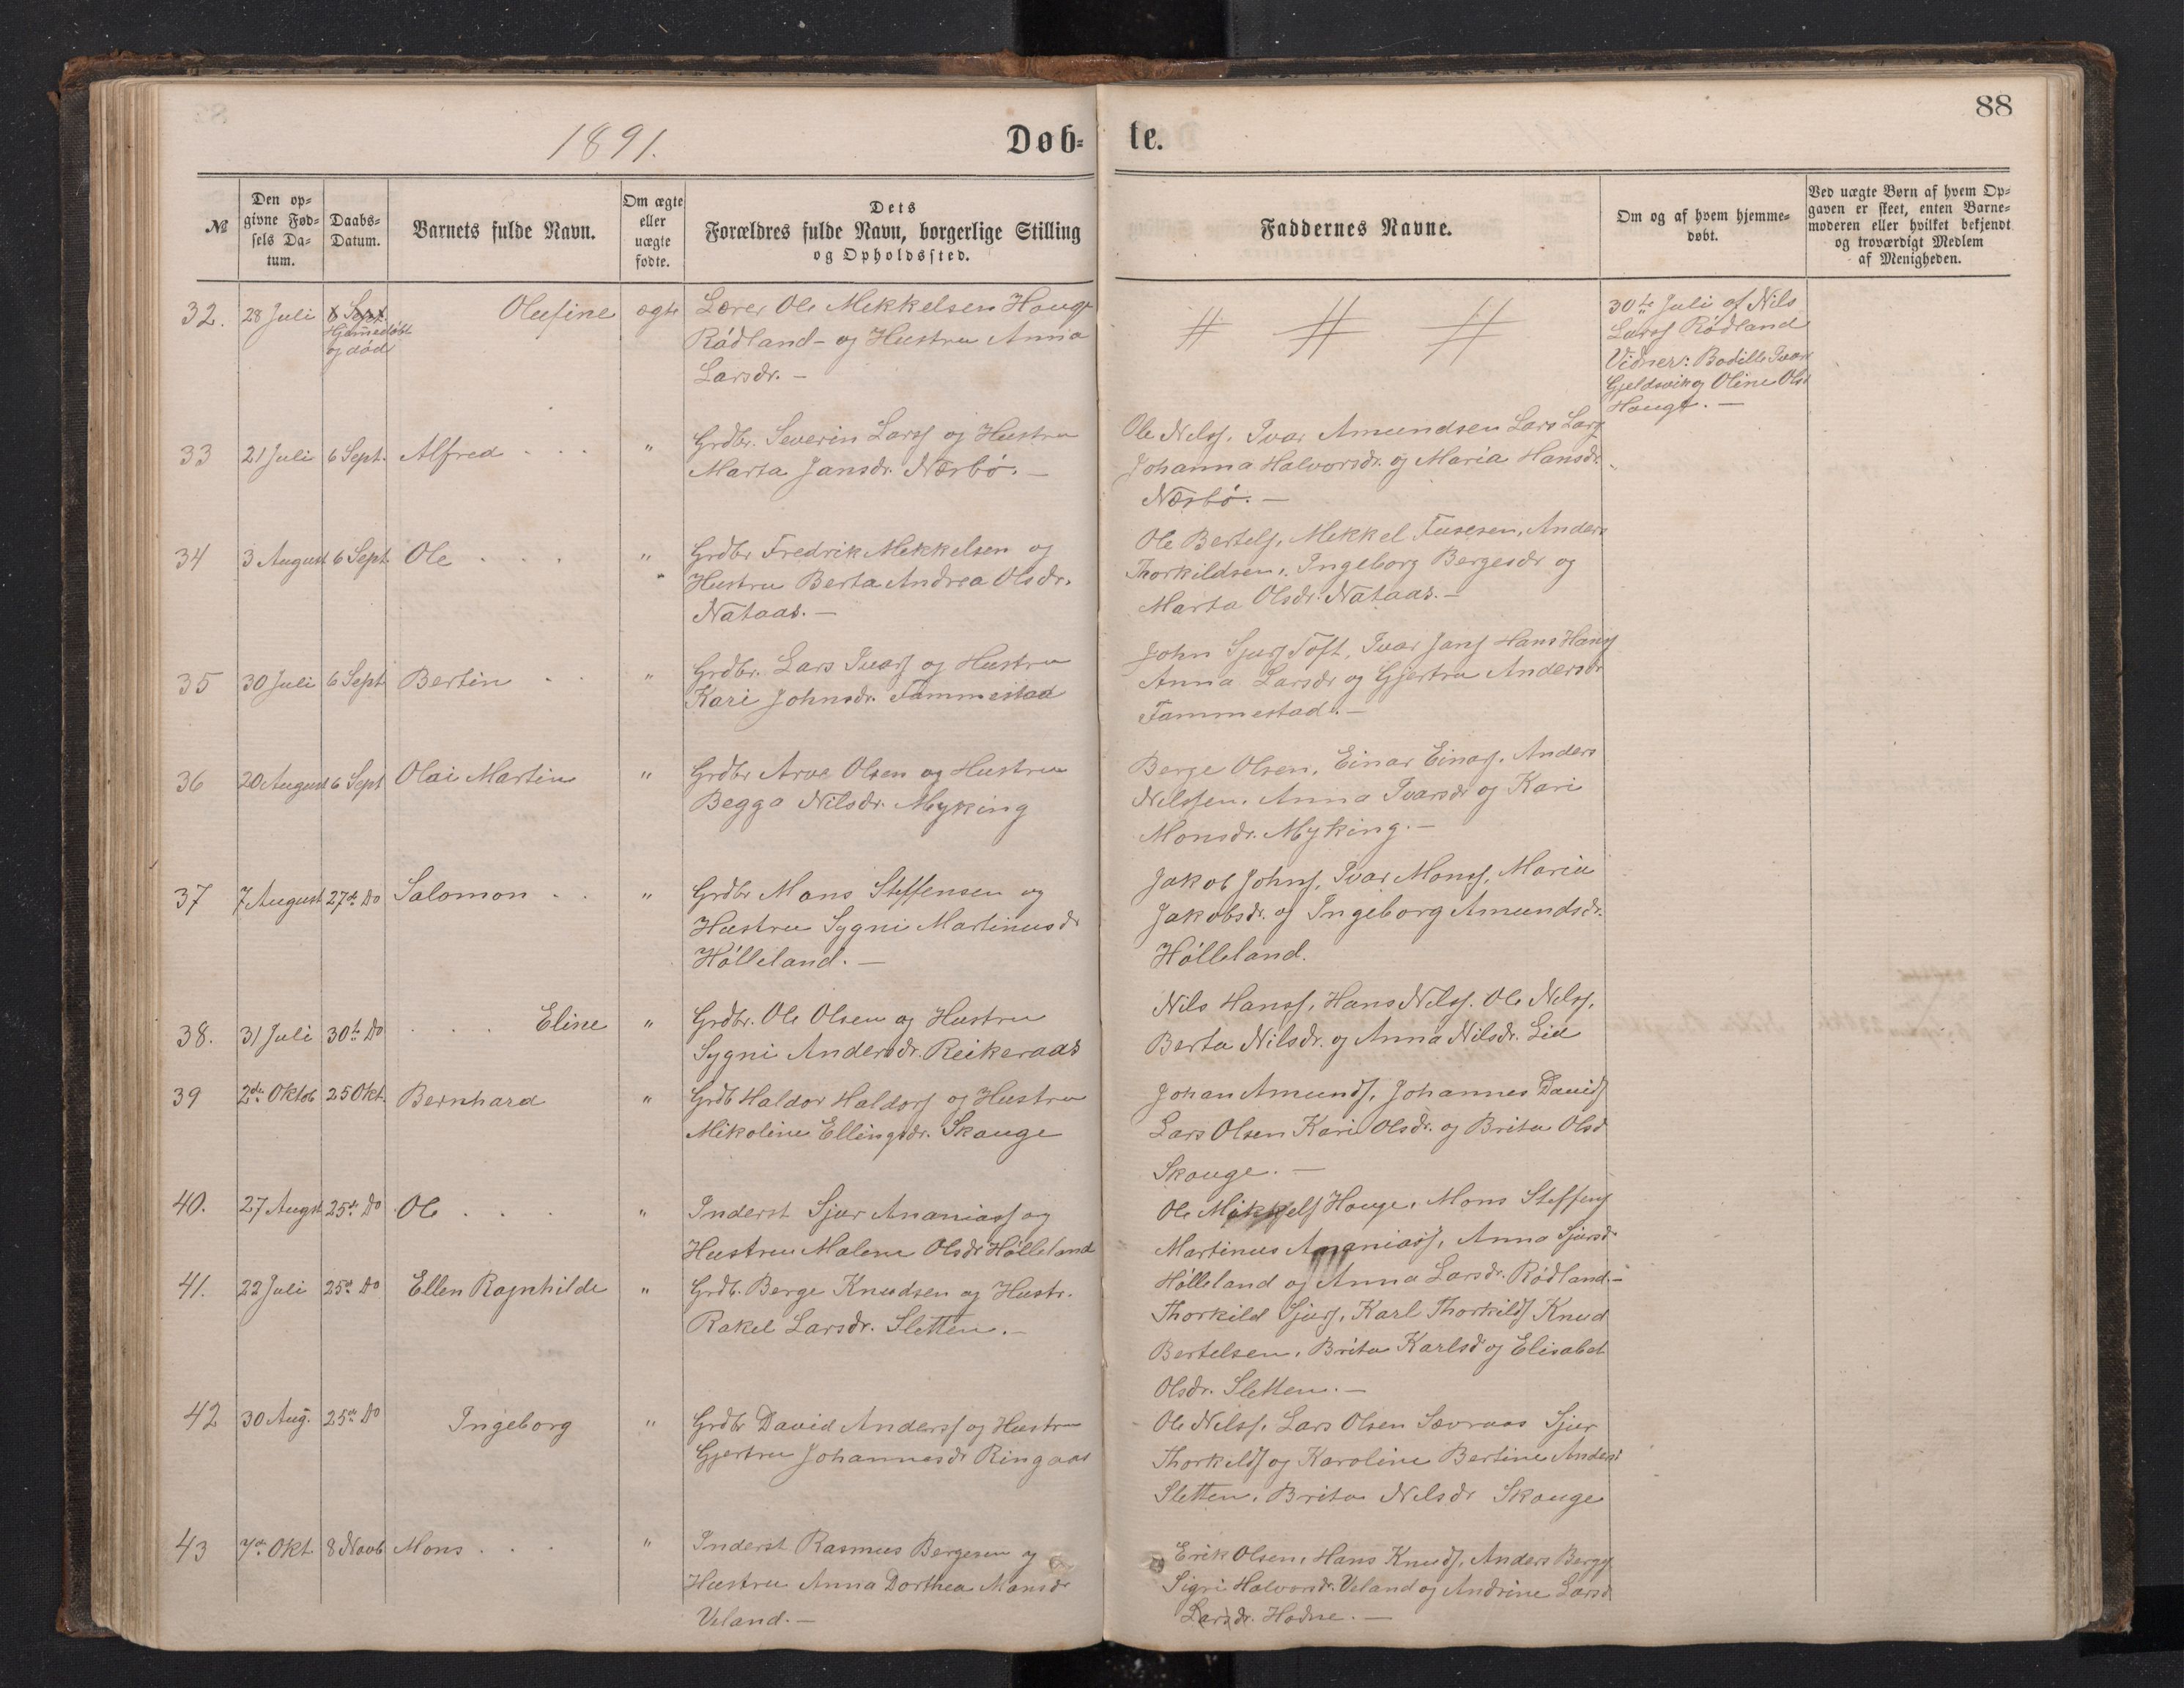 88
1891.
Døb= te.
№
Den op=
givne Fød=
sels Da=
tum.
Daabs=
Datum.
Barnets fulde Navn.
Om ægte
eller
uægte
fødte.
Dets
Forældres fulde Navn, borgerlige Stilling
og Opholdssted.
Faddernes Navne.
Om og af hvem hjemme=
døbt.
Ved uægte Børn af hvem Op=
gaven er skeet, enten Barne=
moderen eller hvilket bekjendt
og troværdigt Medlem
af Menigheden.
32. 28 Juli 6 Sept. Hjemmedøbt og død Olufine ægte Lærer Ole Mikkelsen Houge
Rødland - og Hustru Anna
Larsdr. -
# # #
30te Juli af Nils
Larss Rødland
Vidner: Bodille Ivars
Gjeldsvik og Oline Olsd
Houge. -
33 21 Juli 6 Sept. Alfred . . . " Grdbr. Severin Larss og Hustru
Marta Jansdr. Næsbø. -
Ole Nilss, Ivar Amundsen Lars Larss
Johanna Halvorsdr. og Maria Hansdr.
Næsbø. -
34 3 August 6 Sept Ole . . . " Grdbr Fredrik Mikkelsen og
Hustru Berta Andrea Olsdr.
Nataas. -
Ole Bertels, Mikkel Tusesen, Anders
Thorkildsen, Ingeborg Bergesdr og
Marta Olsdr. Nataas. -
35 30 Juli 6 Sept Bertin . . " Grdbr. Lars Ivars og Hustru
Kari Johnsdr. Fammestad
John Sjurs Toft, Ivar Jans Hans Hanss
Anna Larsdr og Gjertru Andersdr
Fammestad. -
36 20 August 6 Sept Olai Martin " Grdbr Arve Olsen og Hustru
Begga Nilsdr. Myking
Berge Olsen, Einar Einars, Anders
Nilssen, Anna Ivarsdr og Kari
Monsdr. Myking. -
37 7 August 27de Do Salomon . . " Grdbr Mons Steffensen og
Hustru Sygni Martinusdr
Hølleland. -
Jakob Johns, Ivar Monss, Maria
Jakobsdr. og Ingeborg Amundsdr.
Hølleland.
38. 31 Juli 30te Do . . . Eline " Grdbr. Ole Olsen og Hustru
Sygni Andersdr. Reikeraas
Nils Hanss, Hans Nilss. Ole Nilss,
Berta Nilsdr. og Anna Nilsdr. Lie
39 2de Oktob 25 Okt. Bernhard " Grdb Haldor Haldors og Hustru
Mikoline Ellingsdr. Skauge
Johan Amunds, Johannes Davids
Lars Olsen Kari Olsdr. og Brita Olsd
Skouge. -
40. 27 Augst 25de Do Ole . . . " Inderst Sjur Ananiass og
Hustru Malene Olsdr Hølleland
Ole Mikkels Houge, Mons Steffens
Martinus Ananiass, Anna Sjursdr
Hølleland og Anna Larsdr. Rødland. -
41. 22 Juli 25de Do Ellen Ragnhilde " Grdb. Berge Knudsen og Hustr.
Rakel Larsdr. Sletten. -
Thorkild Sjurs, Karl Thorkilds Knud
Bertelsen, Brita Karlsd og Elisabet
Olsdr. Sletten. -
42 30 Aug. 25de Do Ingeborg " Grdbr David Anderss og Hustru
Gjertru Johannesdr Ringaas
Ole Nilss, Lars Olsen Sævraas Sjur
Thorkilds og Karoline Bertine Andersd
Sletten, Brita Nilsdr Skouge
43 7de Okt 8 Novb Mons . . . " Inderst Rasmus Bergesen og
Hustru Anna Dorthea Monsdr
Veland. -
Erik Olsen, Hans Knuds, Anders Berges
Sigri Halvorsdr. Veland og Andrine Larsd
Larsdr. Hodne. -